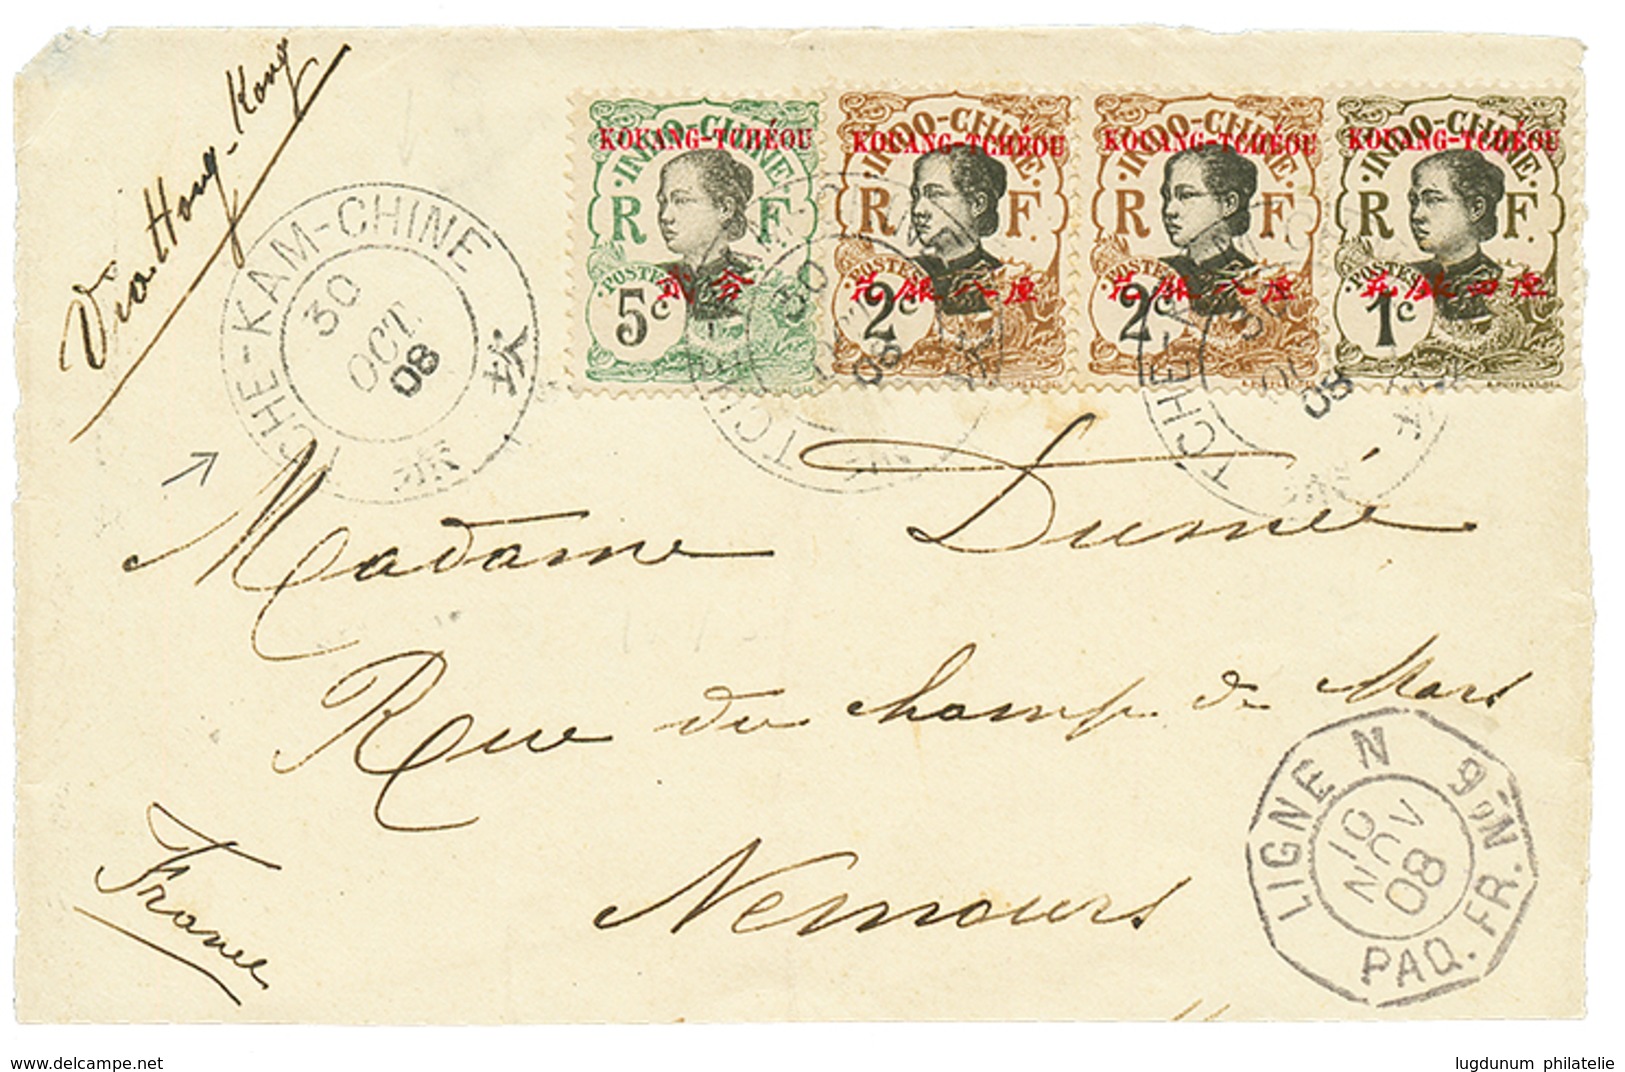 Via Hong-Kong
TCHE-KAM-CHINE
30
OCT.
08
KOUANG-TCHÉOU
INDO-CHINE
R F
POSTES
5c
KOUANG-TCHÉOU
INDO-CHINE
R F
POSTES
2c
花銀八厘
KOUANG-TCHÉOU
INDO-CHINE
R F
POSTES
2c
花銀八厘
KOUANG-TCHÉOU
INDO-CHINE
R F
POSTES
1c
花銀四厘
TCHE
30
08
TCHE
08
Madame Dumée
Rue du champ de Mars
Nemours
France
LIGNE N
PAQ. FR. Nº 9
10
NOV
08
www.delcampe.net
lugdunum philatelie